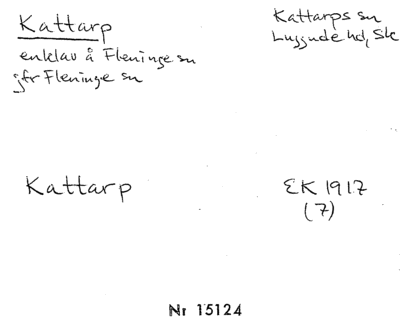 Kattarp
enklav å Fleninge sn
jfr Fleninge sn
Kattarps sn
Luggude hd, Sk
Kattarp
EK 1917
(7)
Nr 15124